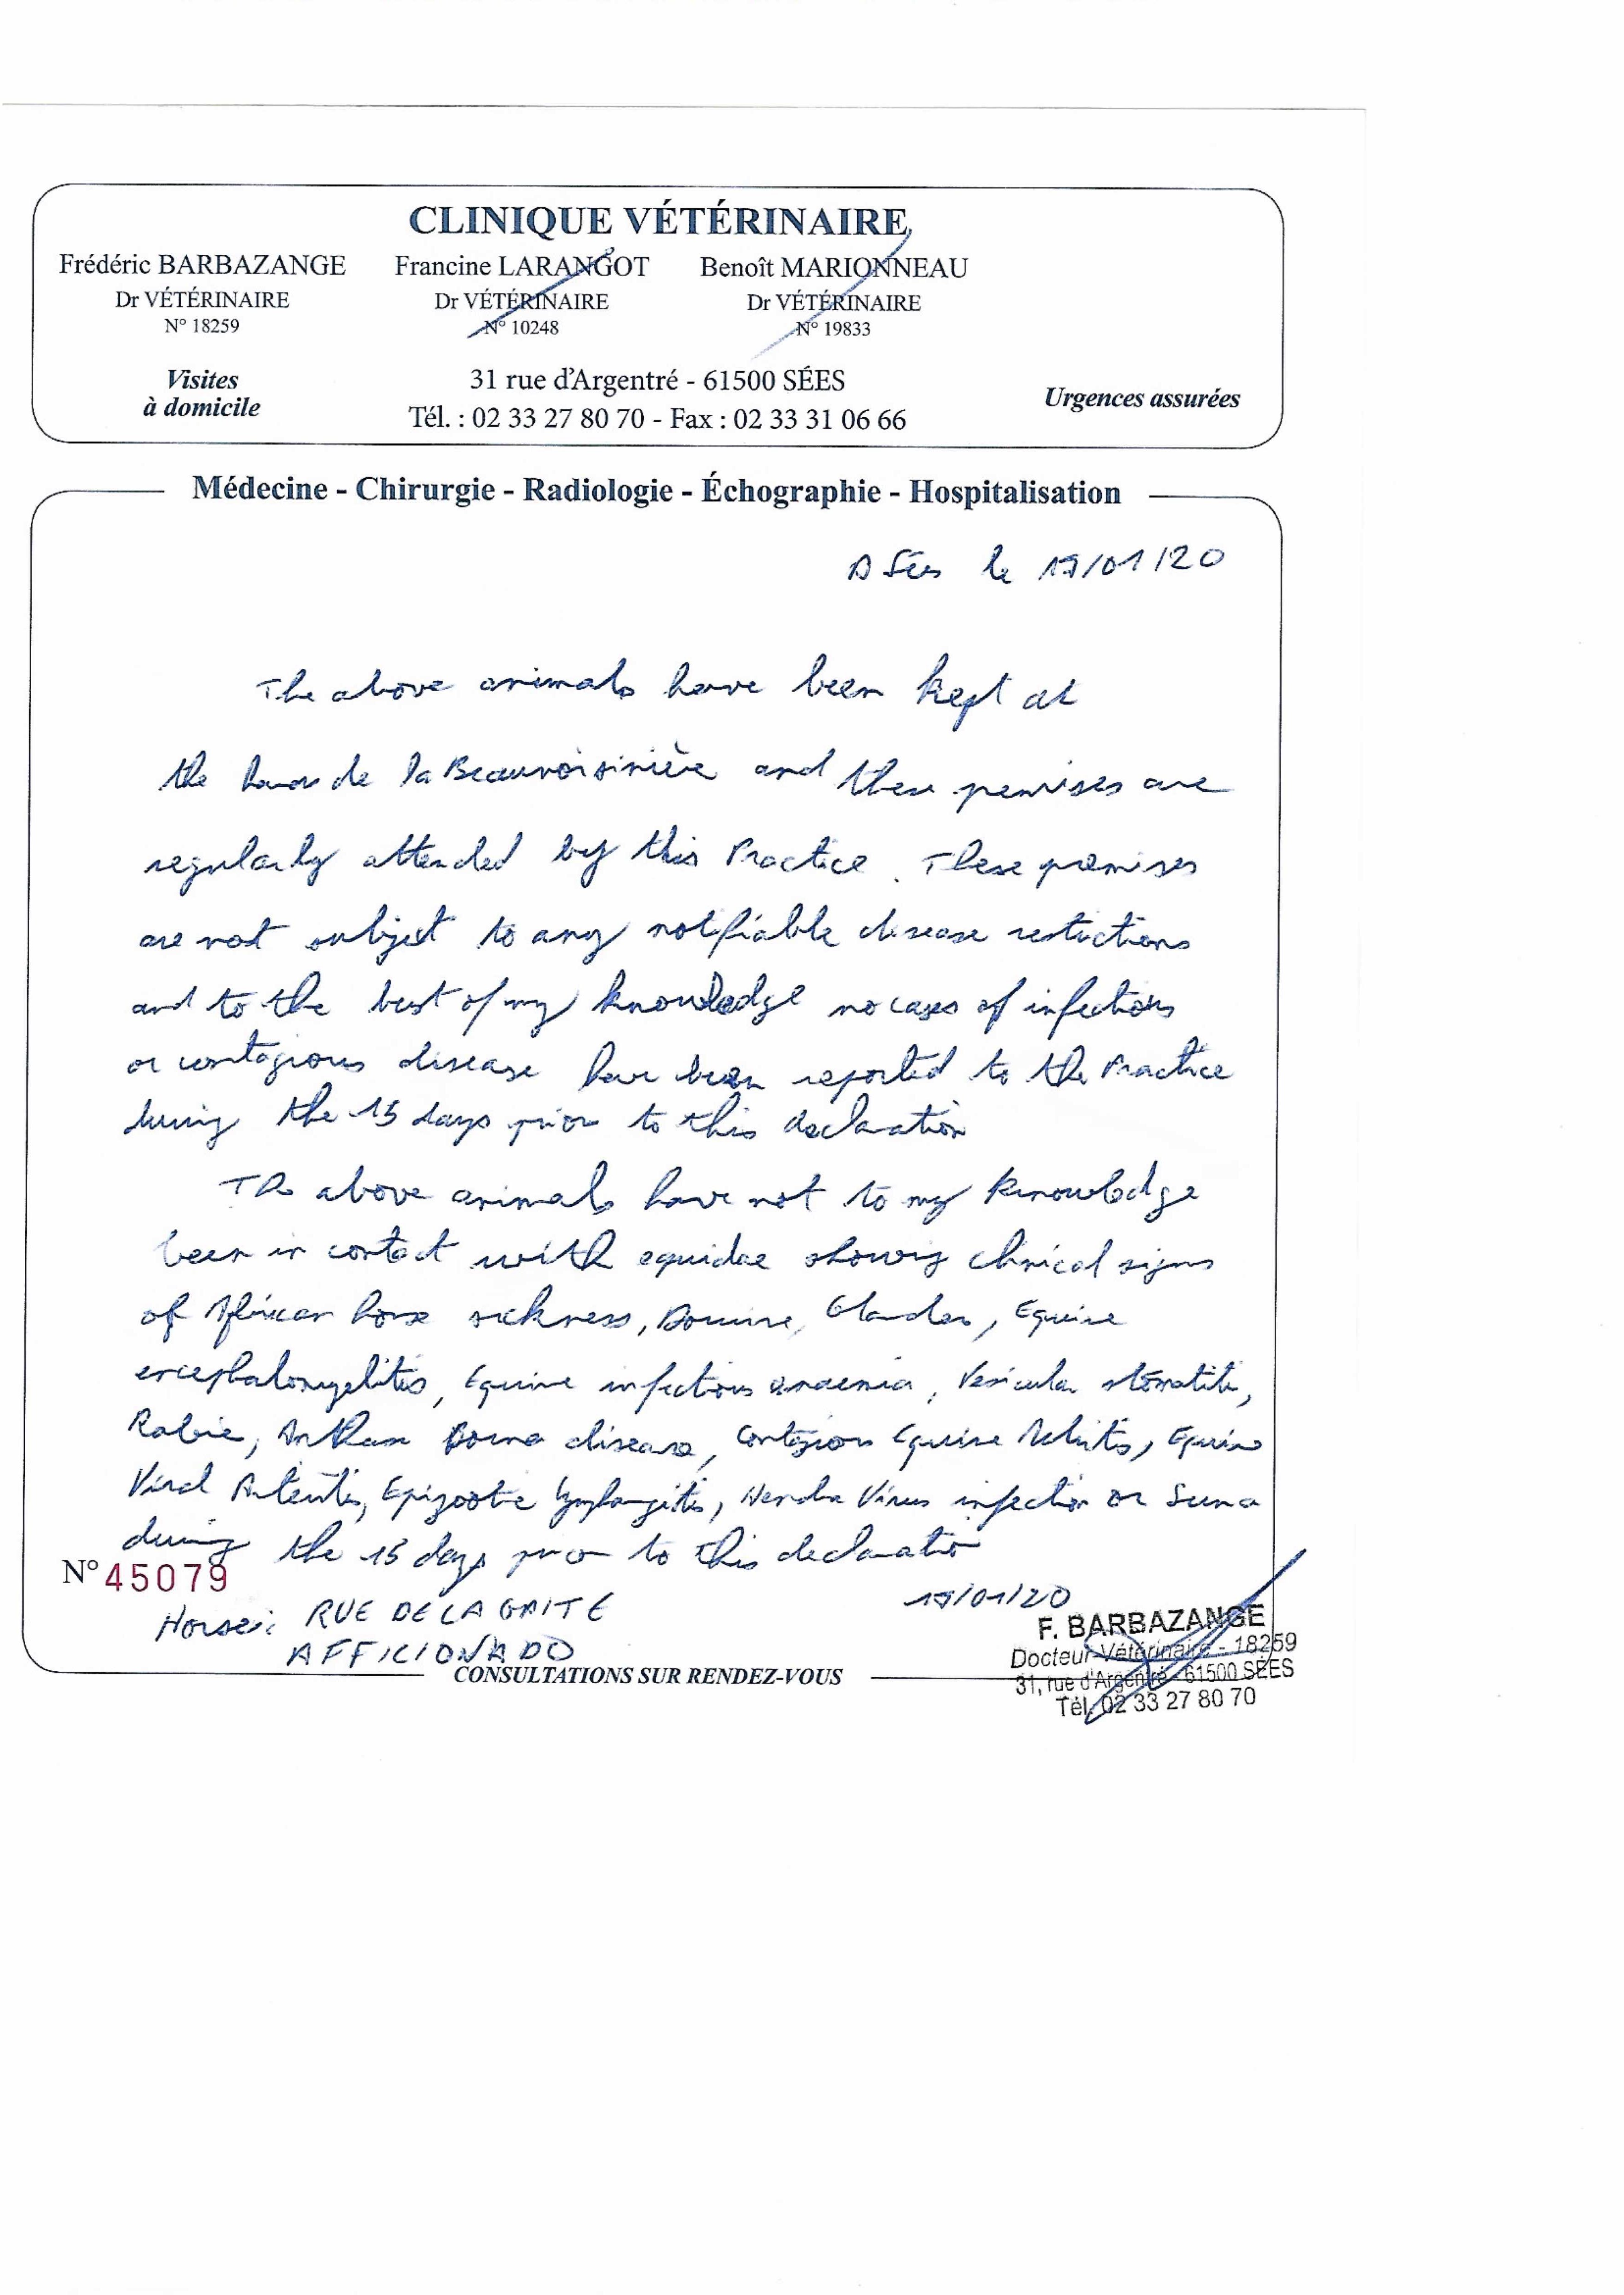 CLINIQUE VÉTÉRINAIRE
Frédéric BARBAZANGE Francine LARANGOT Benoît MARIONNEAU
Dr VÉTÉRINAIRE Dr VÉTÉRINAIRE Dr VÉTÉRINAIRE
N° 18259 N° 10248 N° 19833
Visites
à domicile
31 rue d'Argentré - 61500 SÉES
Tél. : 02 33 27 80 70 - Fax : 02 33 31 06 66
Urgences assurées
Médecine - Chirurgie - Radiologie - Échographie - Hospitalisation
A Sées le /01/20
The above animals have been kept at
the haras de la Beauvoisinière and these premises are
regularly attended by this Practice. These premises
are not subject to any notifiable disease restrictions
and to the best of my knowledge no cases of infectious
or contagious disease have been reported to the Practice
during the 15 days prior to this declaration
The above animals have not to my knowledge
been in contact with equidae showing clinical signs
of African horse sickness, Dourine, Glanders, Equine
encephalomyelitis, Equine infectious anaemia, Vesicular stomatitis,
Rabie, Anthrax Borna disease, Contagious Equine Metritis, Equine
Viral Arteritis, Epizootic lymphangitis, Hendra Virus infection or Surra
during the 15 days prior to this declaration
N° 45079
/01/20
Horses: RUE DE LA GAITE
AFFICIONADO
F. BARBAZANGE
Docteur Vétérinaire - 18259
31, rue d'Argentré - 61500 SÉES
Tél. 02 33 27 80 70
CONSULTATIONS SUR RENDEZ-VOUS